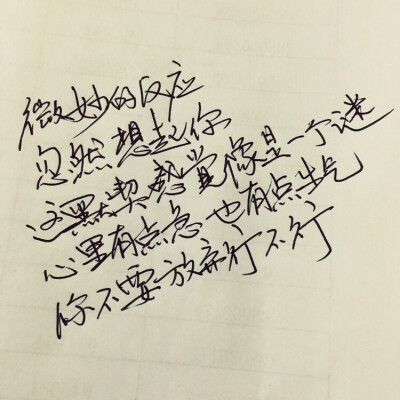 微妙的反应
忽然想起你
这默契感觉像是一个谜
心里有点急也有点生气
你不要放弃行不行